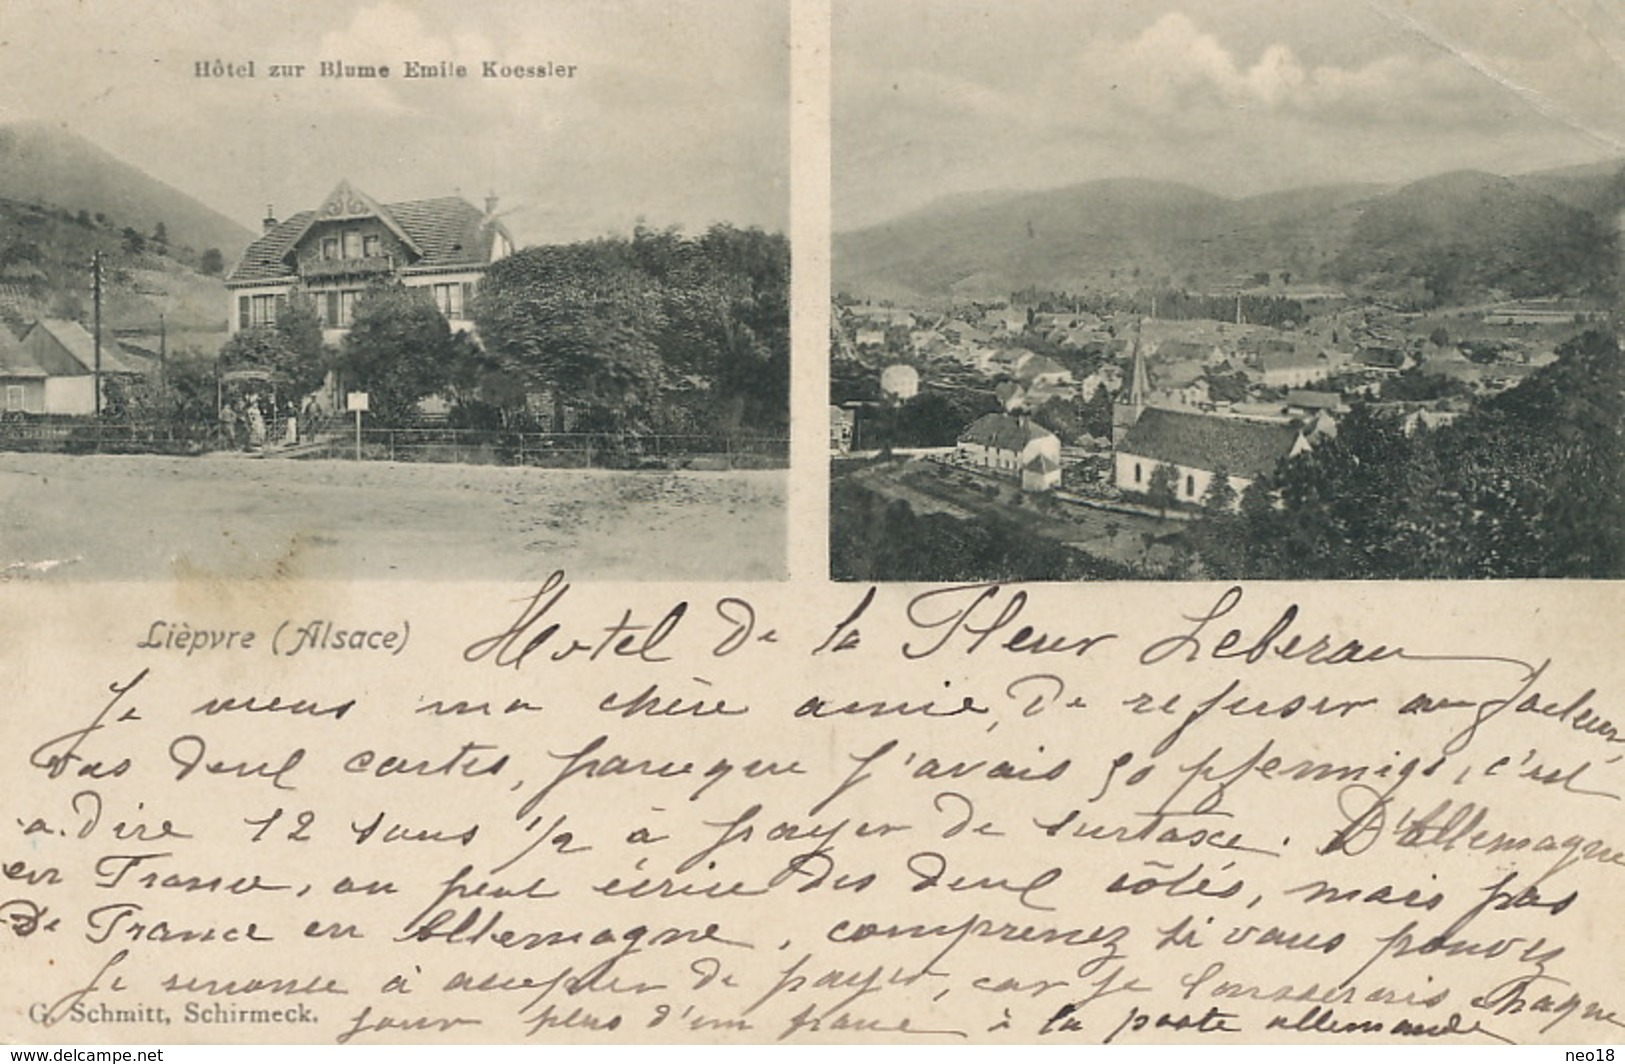 Hôtel zur Blume Emile Koessler
Lièpvre (Alsace)
Hotel de la Fleur Leberau
Je viens ma chère amie, de refuser au facteur,
vos deux cartes, parceque j'avais 50 pfennigs, c'est
-a-dire 12 sous 1/2 à payer de surtaxe. D'Allemagne
en France, on peut écrire des deux côtés, mais pas
de France en Allemagne, comprenez si vous pouvez
Je renonce à accepter de payer, car je laisserais chaque
jour plus d'un franc à la poste allemande
G. Schmitt, Schirmeck.
http://www.delcampe.net
neo18